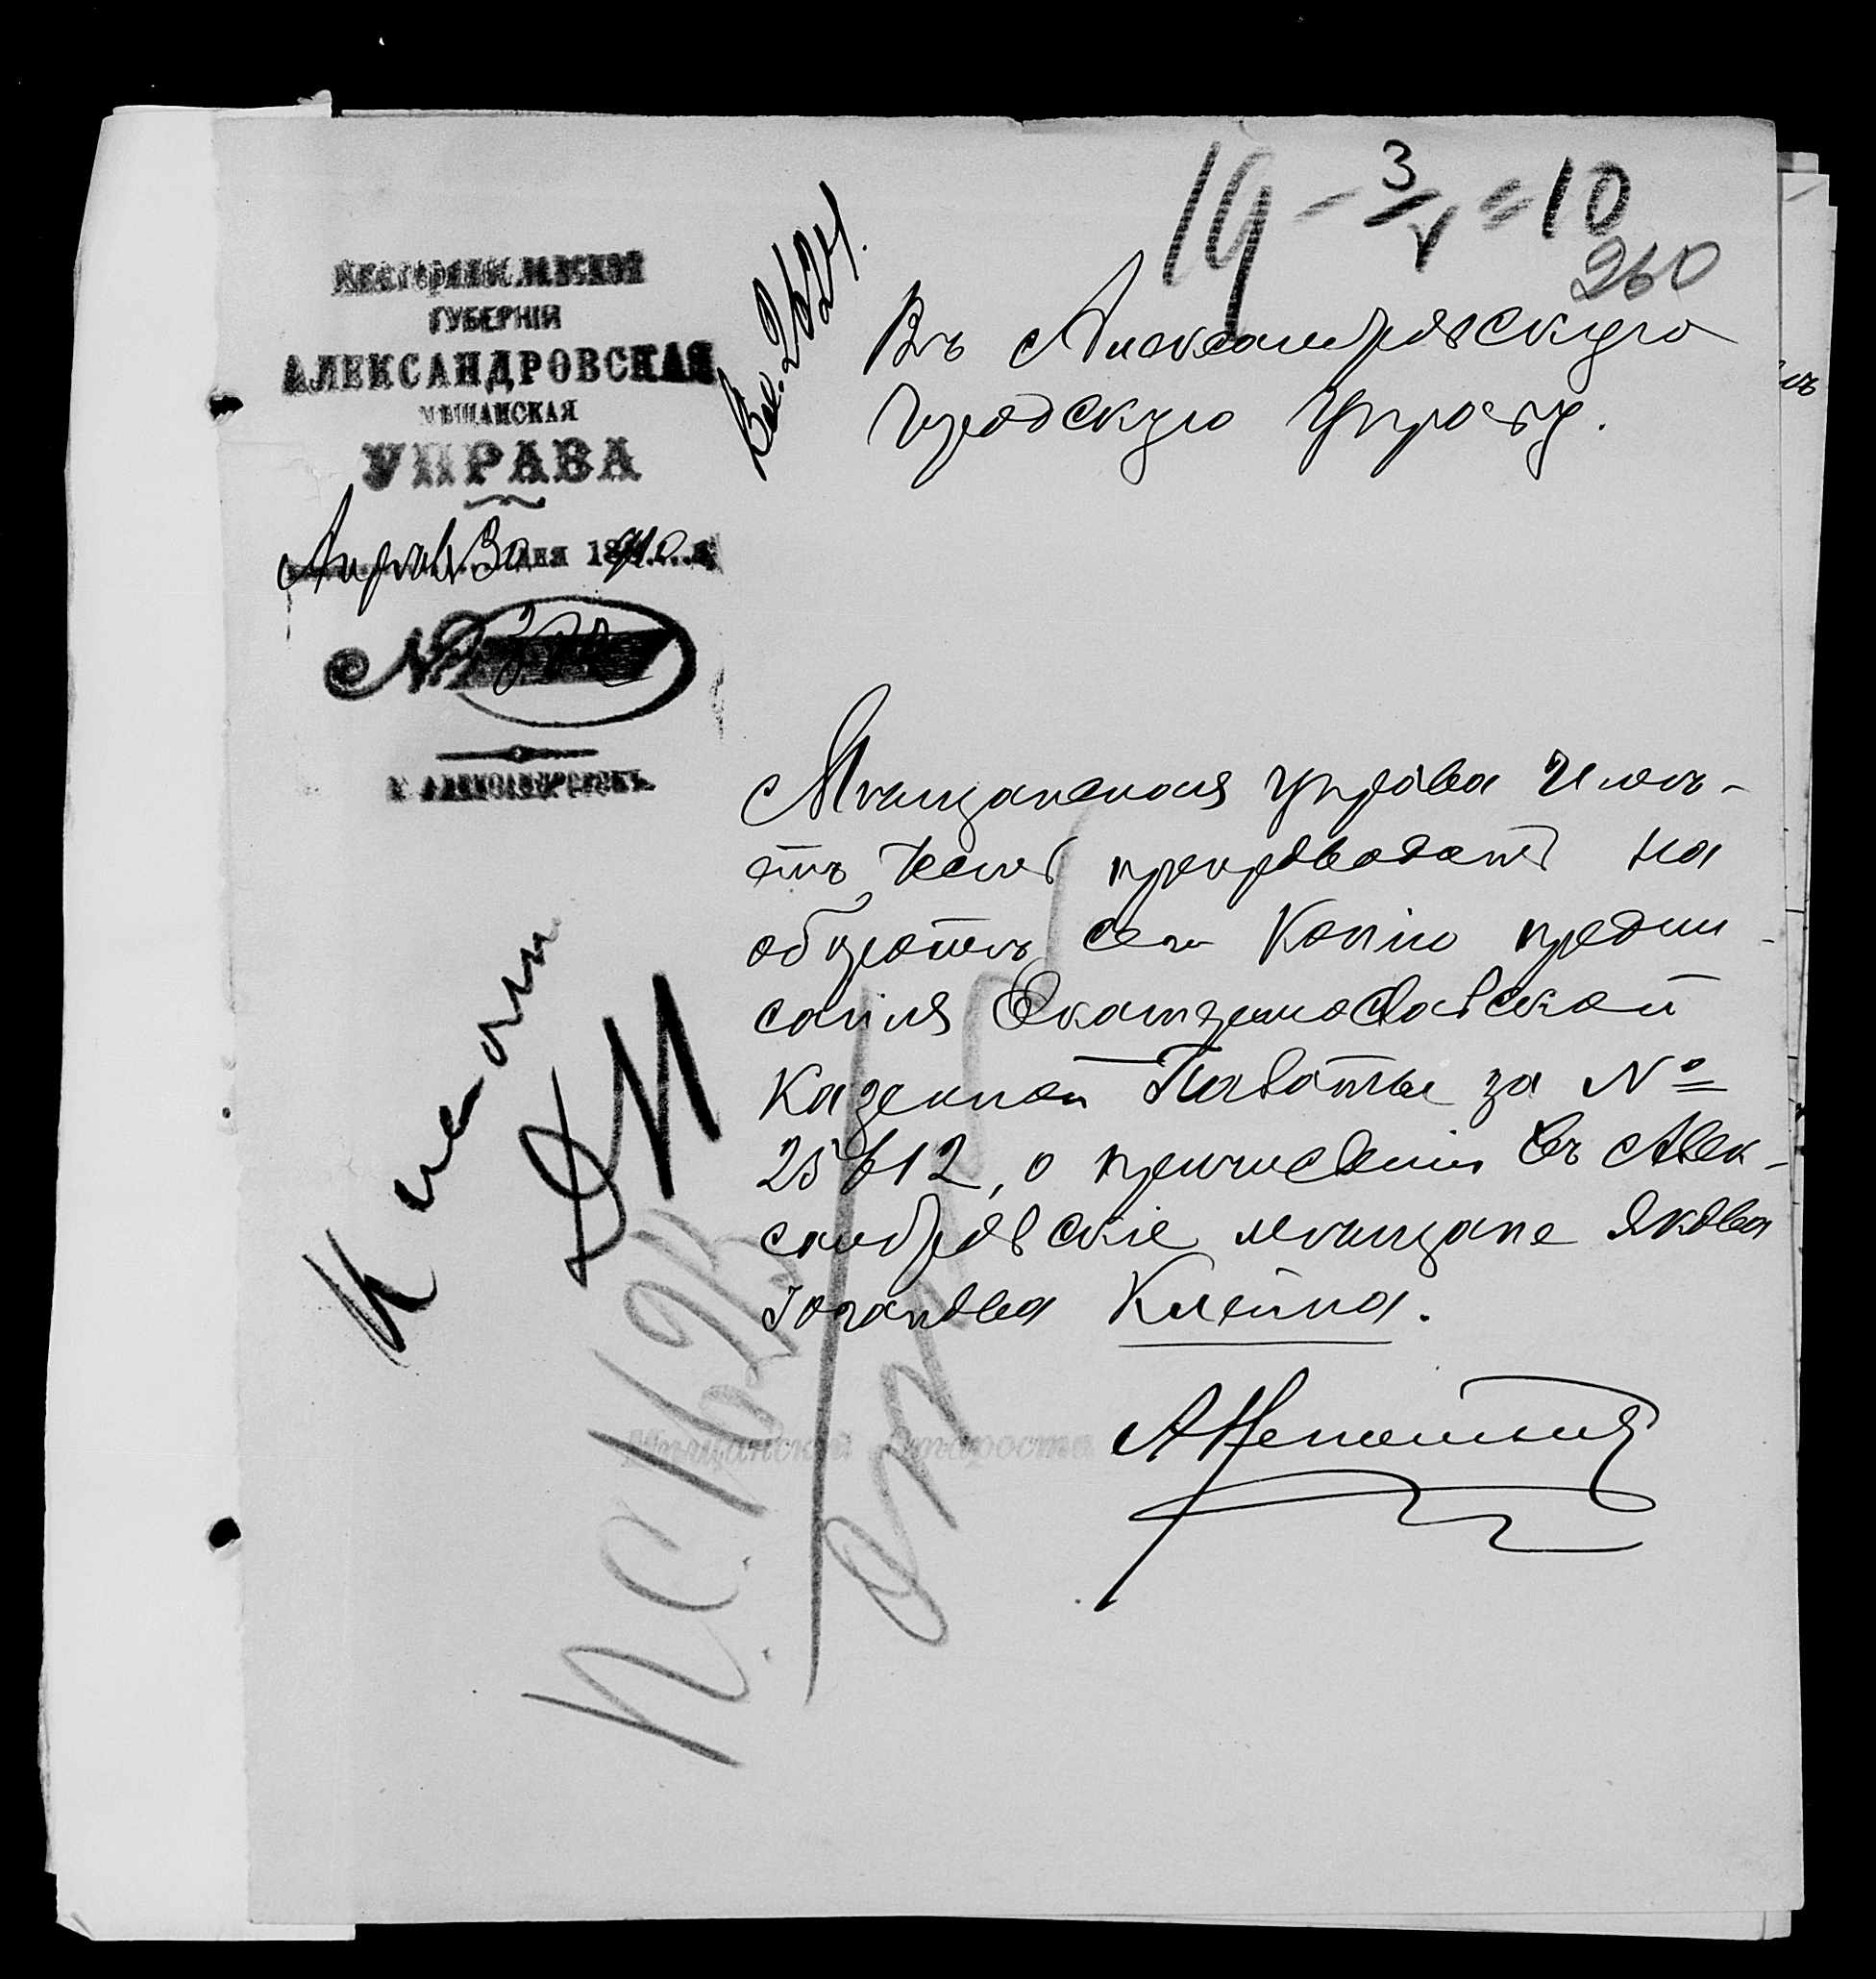 19 - 3/V = 10
260
Вх. 2624.
ЕКАТЕРИНОСЛАВСКОЙ
ГУБЕРНІИ
АЛЕКСАНДРОВСКАЯ
МѢЩАНСКАЯ
УПРАВА
Апрѣля 30 дня 1910 г.
№
Г. АЛЕКСАНДРОВСКЪ
Въ Александровскую
Городскую Управу.
Мѣщанская управа имѣ-
етъ честь препроводить на
оборотѣ сего копію предпи-
санія Екатеринославской
Казенной Палаты за №
25612, о причисленіи въ Алек-
сандровскіе мѣщане Якова
Іоганова Клейна.
Мѣщанскій Староста
К
ДМ
П.С.